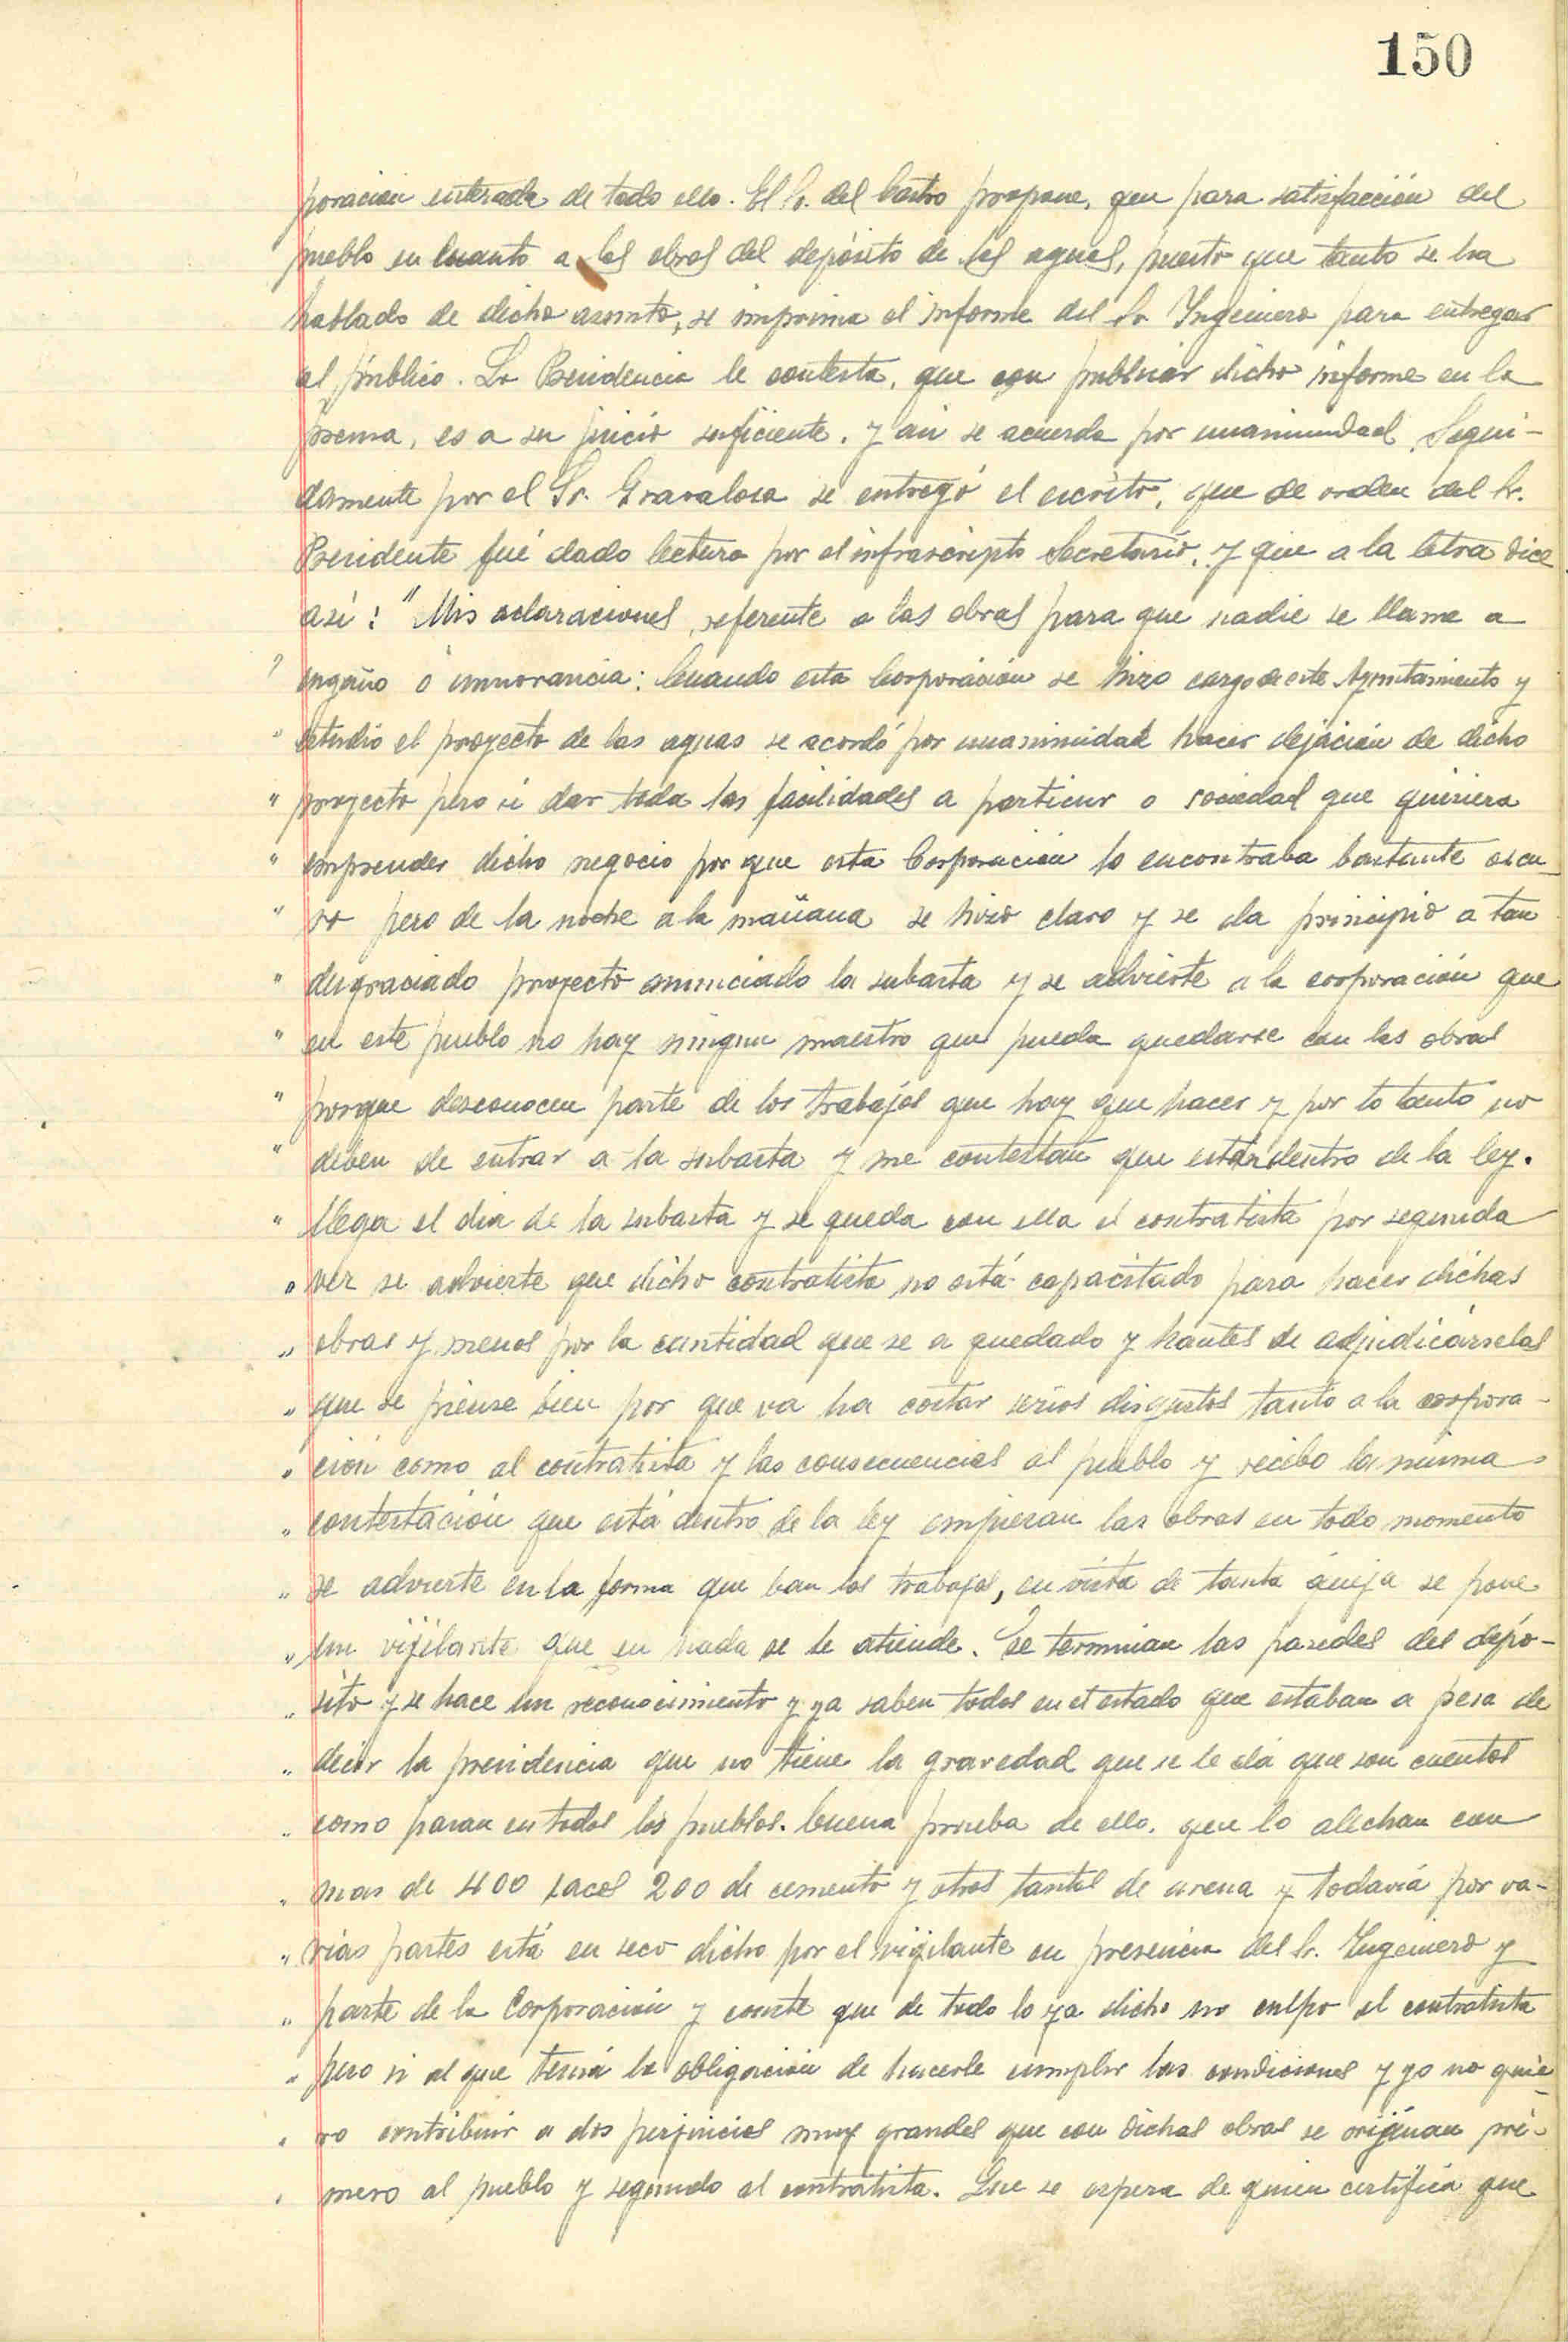 150
poracion enterada de todo ello. El Sr. del Castro propone, que para satisfacción del
pueblo en cuanto a las obras del depósito de las aguas, puesto que tanto se ha
hablado de dicho asunto, se imprima el informe del Sr Ingeniero para entregar
al público. La Presidencia le contesta, que con publicar dicho informe en la
prensa, es a su juicio suficiente. y asi se acuerda por unanimidad. Segui-
damente por el Sr. Gravalosa se entregó el escrito, que de orden del Sr.
Presidente fué dado lectura por el infrascripto Secretario, y que a la letra dice
así: "Mis aclaraciones, referente a las obras para que nadie se llame a
" engaño o innorancia: Cuando esta Corporación se hizo cargo de este Ayuntamiento y
" estudio el proyecto de las aguas se acordó por unanimidad hacer dejación de dicho
" proyecto pero si dar toda las facilidades a particur o sociedad que quisiera
" emprender dicho negocio por que esta Corporación lo encontraba bastante oscu-
" ro pero de la noche a la mañana se hizo claro y se da principio a tan
" desgraciado proyecto anunciado la subasta y se advierte a la corporación que
" en este pueblo no hay ningun maestro que pueda quedarse con las obras
" porque desconocen parte de los trabajos que hay que hacer y por lo tanto no
" deben de entrar a la subasta y me contestan que están dentro de la ley.
" Llega el dia de la subasta y se queda con ella el contratista por segunda
" vez se advierte que dicho contratista no está capacitado para hacer dichas
" obras y menos por la cantidad que se a quedado y hantes de adjudicárselas
" que se piense bien por que va ha costar serios disgustos tanto a la corpora-
" ción como al contratista y las consecuencias al pueblo y recibo la misma
" contestación que está dentro de la ley empiezan las obras en todo momento
" se advierte en la forma que ban los trabajos, en vista de tanta queja se pone
" un vijilante que en nada se le atiende. Se terminan las paredes del depó-
" sito y se hace un reconocimiento y ya saben todos en el estado que estaban a pesa de
" decir la presidencia que no tiene la gravedad que se le dá que son cuentos
" como pasan en todos los pueblos. buena prueba de ello, que lo alechan con
" mas de 400 sacos 200 de cemento y otros tantos de arena y todavia por va-
" rias partes está en seco dicho por el vijilante en presencia del Sr. Ingeniero y
" parte de la Corporación y conste que de todo lo ya dicho no culpo al contratista
" pero si al que tenia la obligación de hacerle cumplir las condiciones y yo no quie-
" ro contribuir a dos perjuicios muy grandes que con dichas obras se orijinan pri-
" mero al pueblo y segundo al contratista. Que se espera de quien certifica que